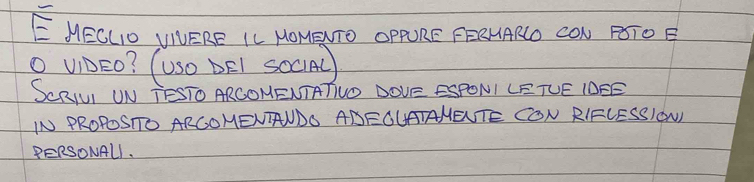 È MEGLIO VIVERE IL MOMENTO OPPURE FERMARLO CON FOTO E
O VIDEO? (USO DEI SOCIAL)
SCRIVI UN TESTO ARGOMENTATIVO DOVE ESPONI LE TUE IDEE
IN PROPOSITO ARGOMENTANDO ADEGUATAMENTE CON RIFLESSIONI
PERSONALI.